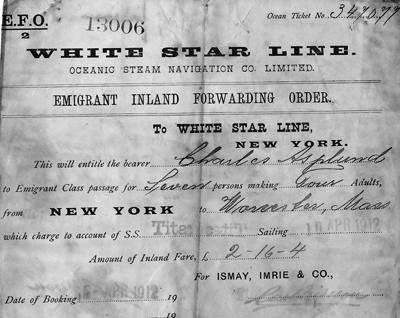 E.F.O. 13006 Ocean Ticket No. 347077
2
WHITE STAR LINE.
OCEANIC STEAM NAVIGATION CO. LIMITED.
EMIGRANT INLAND FORWARDING ORDER.
To WHITE STAR LINE,
NEW YORK.
This will entitle the bearer Charles Asplund
to Emigrant Class passage for Seven persons making four Adults,
from NEW YORK to Worcester, Mass
which charge to account of S.S. Titanic Sailing 10 APR 1912
Amount of Inland Fare, £ 2-16-4
For ISMAY, IMRIE & CO.,
Date of Booking APR 1912 19
19